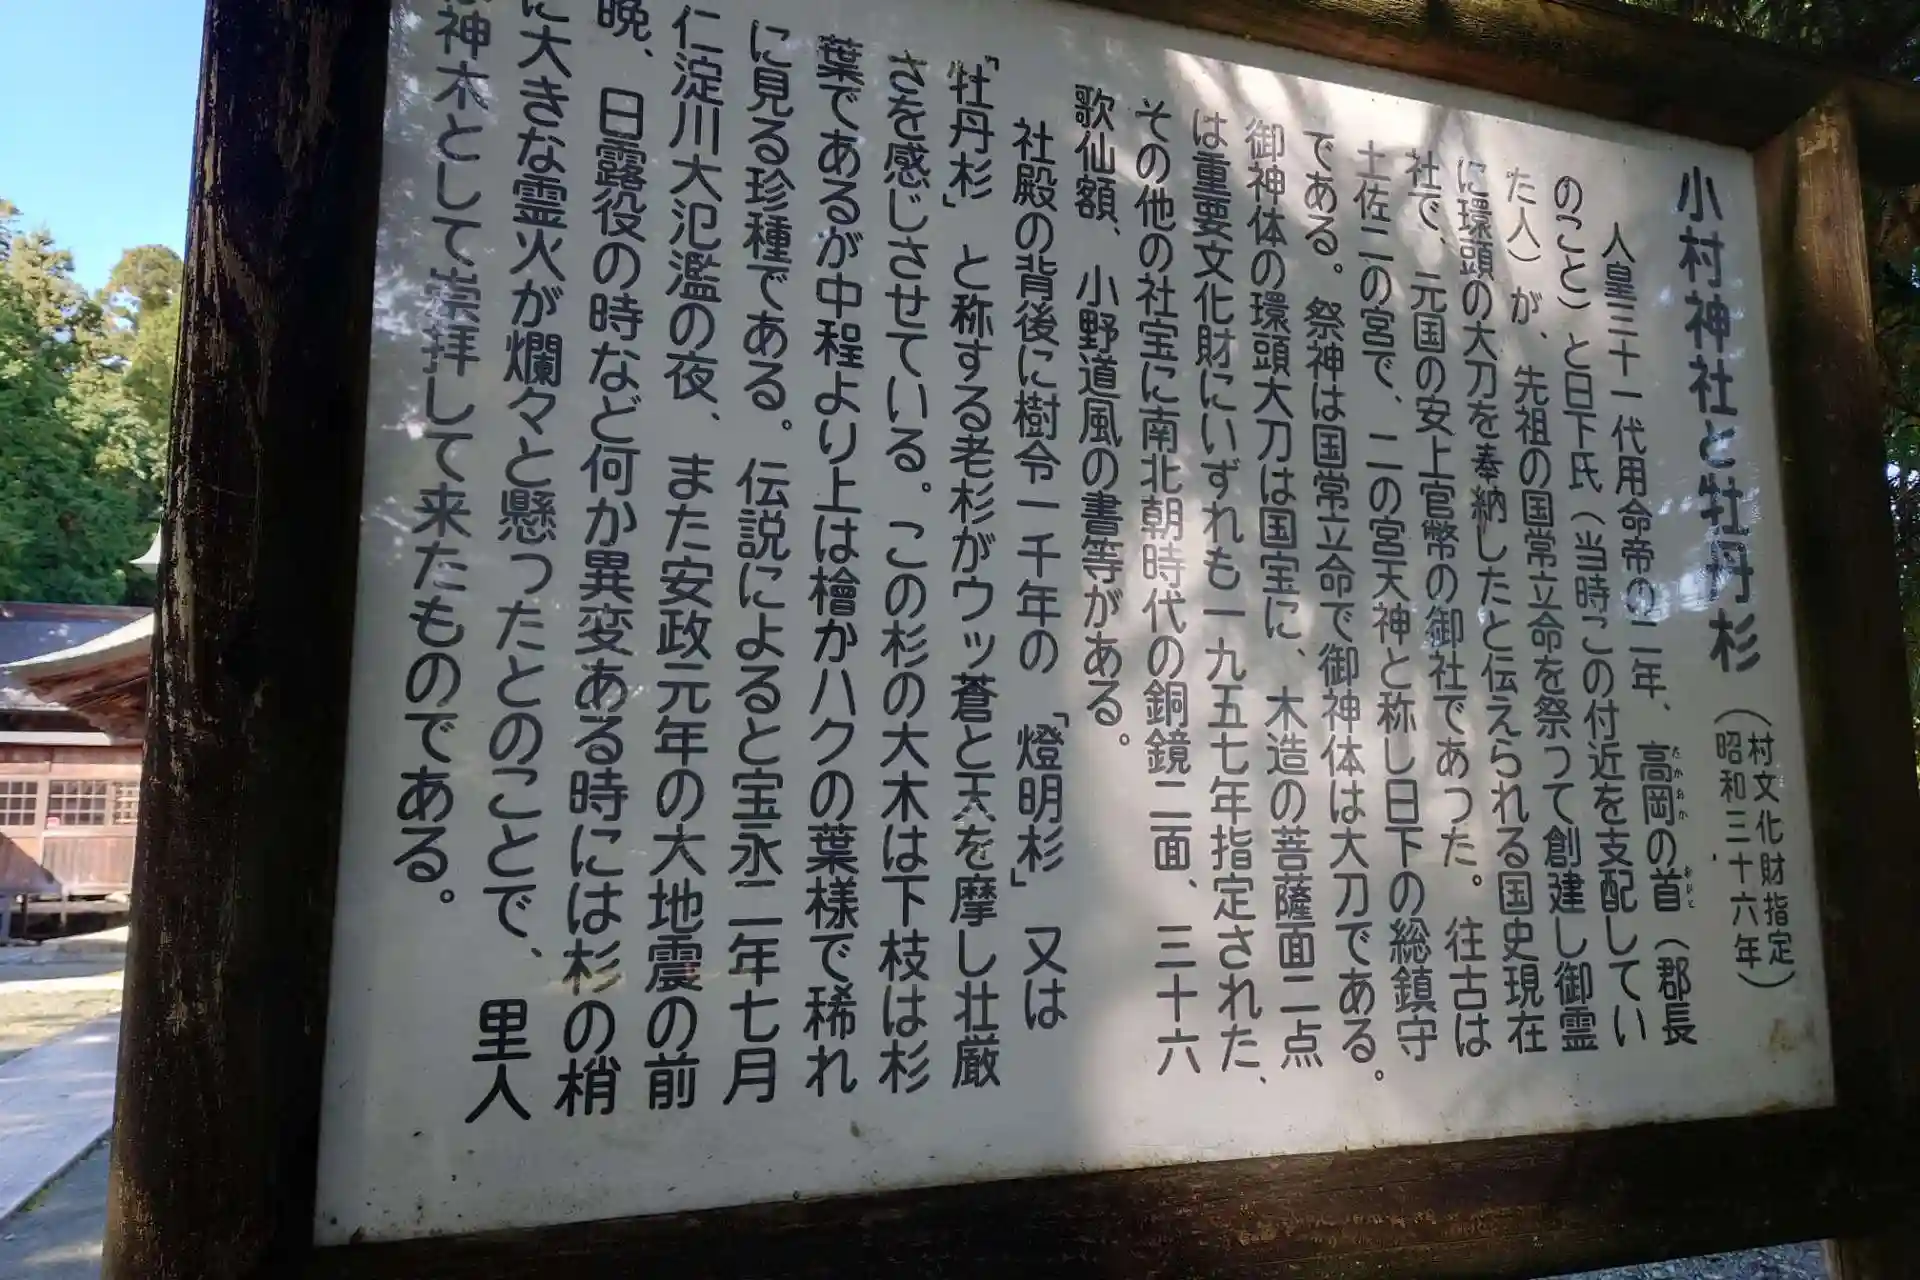 小村神社と牡丹杉
(村文化財指定
昭和三十六年)
人皇三十一代用命帝の二年、高岡の首(郡長
たかおか
おびと
のこと)と日下氏(当時この付近を支配してい
た人)が、先祖の国常立命を祭って創建し御霊
に環頭の大刀を奉納したと伝えられる国史現在
社で、元国の安上官幣の御社であった。往古は
土佐二の宮で、二の宮天神と称し日下の総鎮守
である。祭神は国常立命で御神体は大刀である。
御神体の環頭大刀は国宝に、木造の菩薩面二点
は重要文化財にいずれも一九五七年指定された、
その他の社宝に南北朝時代の銅鏡二面、三十六
歌仙額、小野道風の書等がある。
社殿の背後に樹令一千年の「燈明杉」又は
「牡丹杉」と称する老杉がウッ蒼と天を摩し壮厳
さを感じさせている。この杉の大木は下枝は杉
葉であるが中程より上は檜かハクの葉様で稀れ
に見る珍種である。伝説によると宝永二年七月
仁淀川大氾濫の夜、また安政元年の大地震の前
晩、日露役の時など何か異変ある時には杉の梢
に大きな霊火が爛々と懸ったとのことで、里人
神木として崇拝して来たものである。